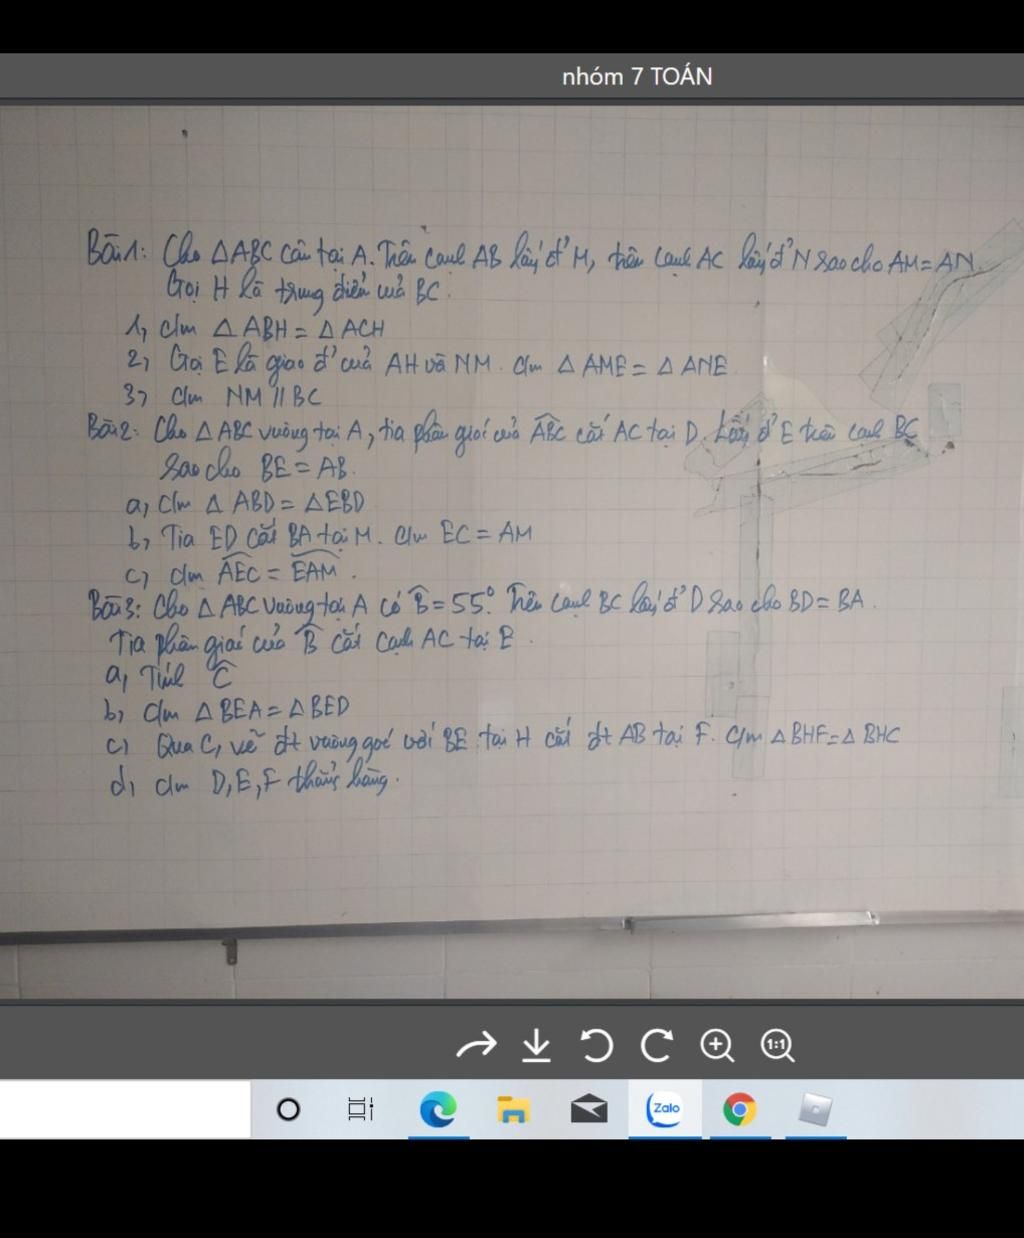 nhóm 7 TOÁN
Bài 1: Cho △ABC cân tại A. Trên cạnh AB lấy đ' M, trên cạnh AC lấy đ' N sao cho AM = AN.
Gọi H là trung điểm của BC.
1, c/m △ ABH = △ ACH
2, Gọi E là giao đ' của AH và NM. c/m △ AME = △ ANE
3, c/m NM // BC
Bài 2: Cho △ ABC vuông tại A, tia phân giác của ABC cắt AC tại D. Lấy đ' E trên cạnh BC
sao cho BE = AB.
a, c/m △ ABD = △EBD
b, Tia ED cắt BA tại M. c/m EC = AM
c, c/m AEC = EAM.
Bài 3: Cho △ ABC vuông tại A có B̂ = 55°. Trên cạnh BC lấy đ' D sao cho BD = BA.
Tia phân giác của B̂ cắt cạnh AC tại E.
a, Tính Ĉ
b, c/m △ BEA = △ BED
c, Qua C, vẽ đt vuông góc với BE tại H cắt đt AB tại F. c/m △ BHF = △ BHC
d, c/m D, E, F thẳng hàng.
1:1
Zalo